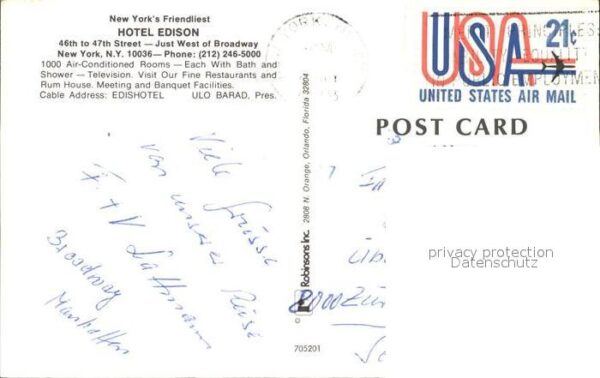 New York's Friendliest
HOTEL EDISON
46th to 47th Street — Just West of Broadway
New York, N.Y. 10036 — Phone: (212) 246-5000
1000 Air-Conditioned Rooms — Each With Bath and
Shower — Television. Visit Our Fine Restaurants and
Rum House. Meeting and Banquet Facilities.
Cable Address: EDISHOTEL ULO BARAD, Pres.
USA 21c
UNITED STATES AIR MAIL
POST CARD
Viele Grüsse
von unserer Reise
F. + V.
Broadway
Manhatten
Robinsons Inc. 2808 N. Orange, Orlando, Florida 32804
705201
8000 Zür
privacy protection
Datenschutz